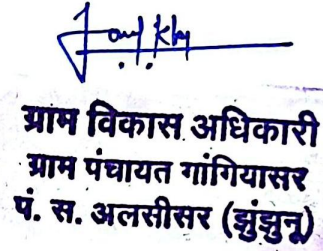 ग्राम विकास अधिकारी
ग्राम पंचायत गांगियासर
पं. स. अलसीसर (झुंझुनू)